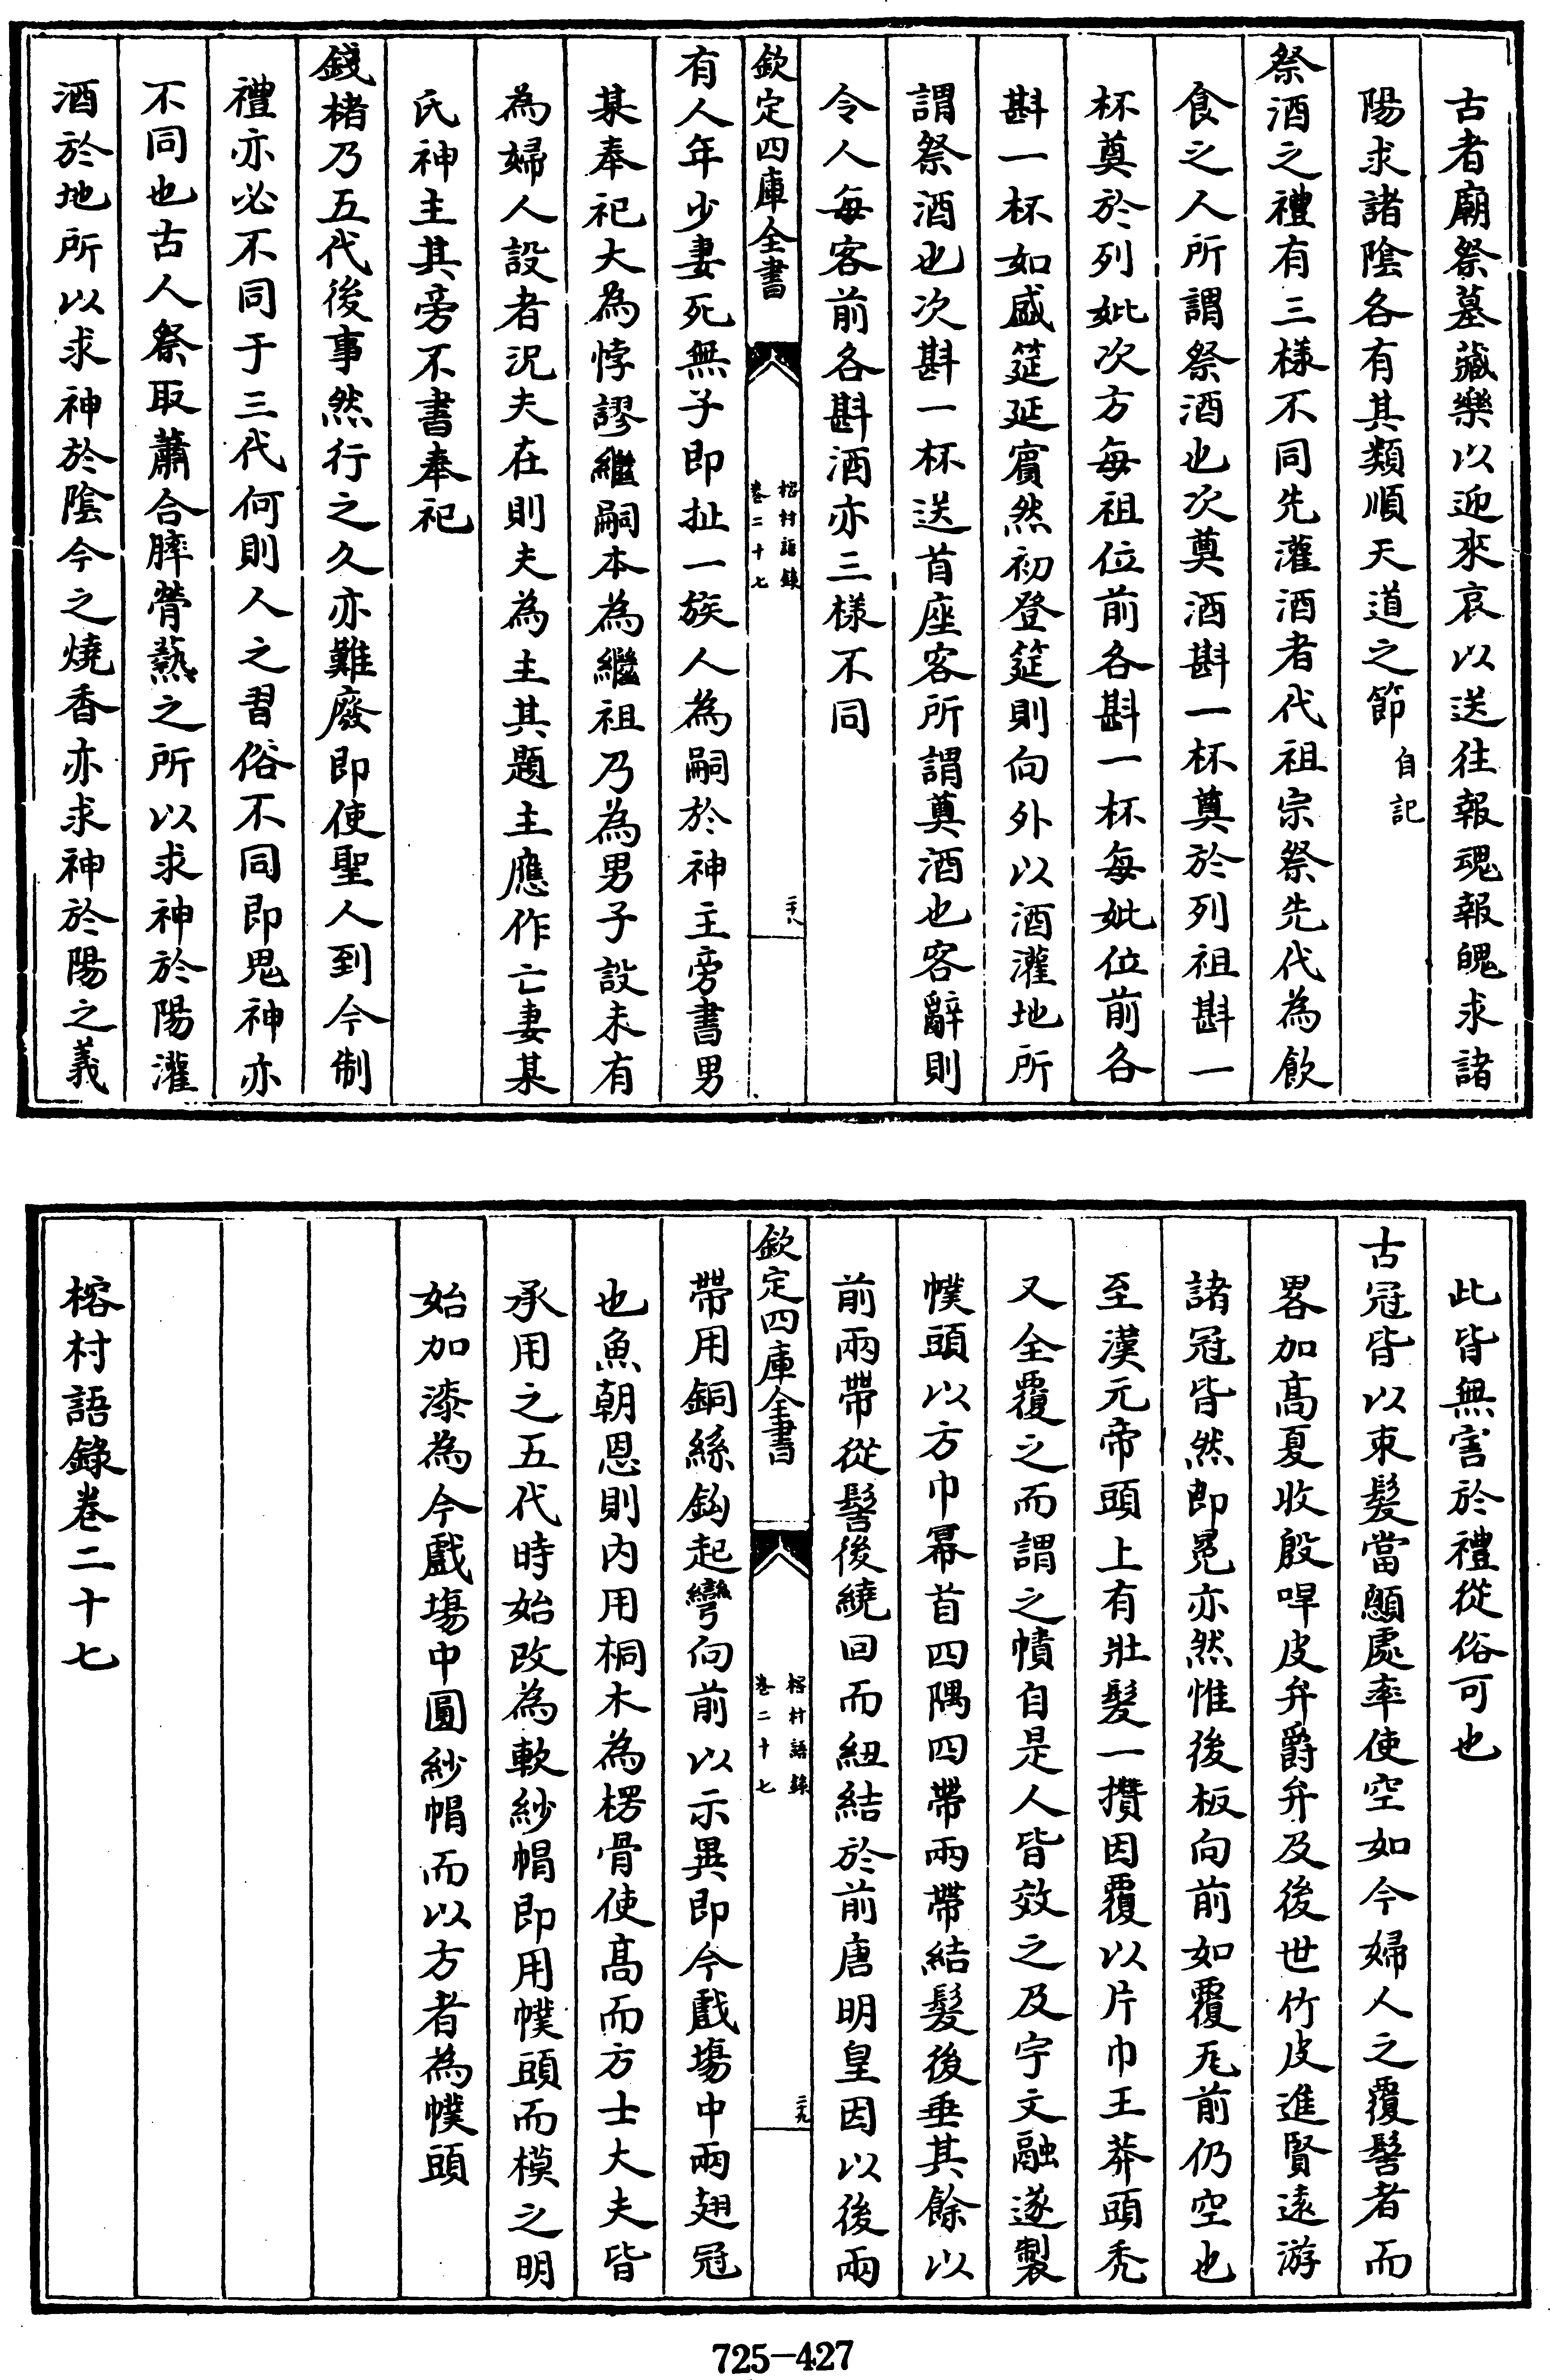 古者廟祭墓藏樂以迎來哀以送往報魂報魄求諸
陽求諸陰各有其類順天道之節自記
祭酒之禮有三樣不同先灌酒者代祖宗祭先代為飲
食之人所謂祭酒也次奠酒斟一杯奠於列祖斟一
杯奠於列妣次方每祖位前各斟一杯每妣位前各
斟一杯如盛筵延賓然初登筵則向外以酒灌地所
謂祭酒也次斟一杯送首座客所謂奠酒也客辭則
令人每客前各斟酒亦三樣不同
欽定四庫全書
榕村語錄
卷二十七
二十八
有人年少妻死無子即扯一族人為嗣於神主旁書男
某奉祀大為悖謬繼嗣本為繼祖乃為男子設未有
為婦人設者況夫在則夫為主其題主應作亡妻某
氏神主其旁不書奉祀
錢楮乃五代後事然行之久亦難廢即使聖人到今制
禮亦必不同于三代何則人之習俗不同即鬼神亦
不同也古人祭取蕭合膟膋爇之所以求神於陽灌
酒於地所以求神於陰今之燒香亦求神於陽之義
此皆無害於禮從俗可也
古冠皆以束髮當顱處率使空如今婦人之覆髻者而
畧加高夏收殷哻皮弁爵弁及後世竹皮進賢遠游
諸冠皆然即冕亦然惟後板向前如覆瓦前仍空也
至漢元帝頭上有壯髮一攢因覆以片巾王莽頭禿
又全覆之而謂之幘自是人皆效之及宇文融遂製
幞頭以方巾冪首四隅四帶兩帶結髮後垂其餘以
前兩帶從髻後繞回而紐結於前唐明皇因以後兩
欽定四庫全書
榕村語錄
卷二十七
二十九
帶用銅絲鈎起彎向前以示異即今戲塲中兩翅冠
也魚朝恩則內用桐木為楞骨使高而方士大夫皆
承用之五代時始改為軟紗帽即用幞頭而模之明
始加漆為今戲塲中圓紗帽而以方者為幞頭
榕村語錄卷二十七
725-427